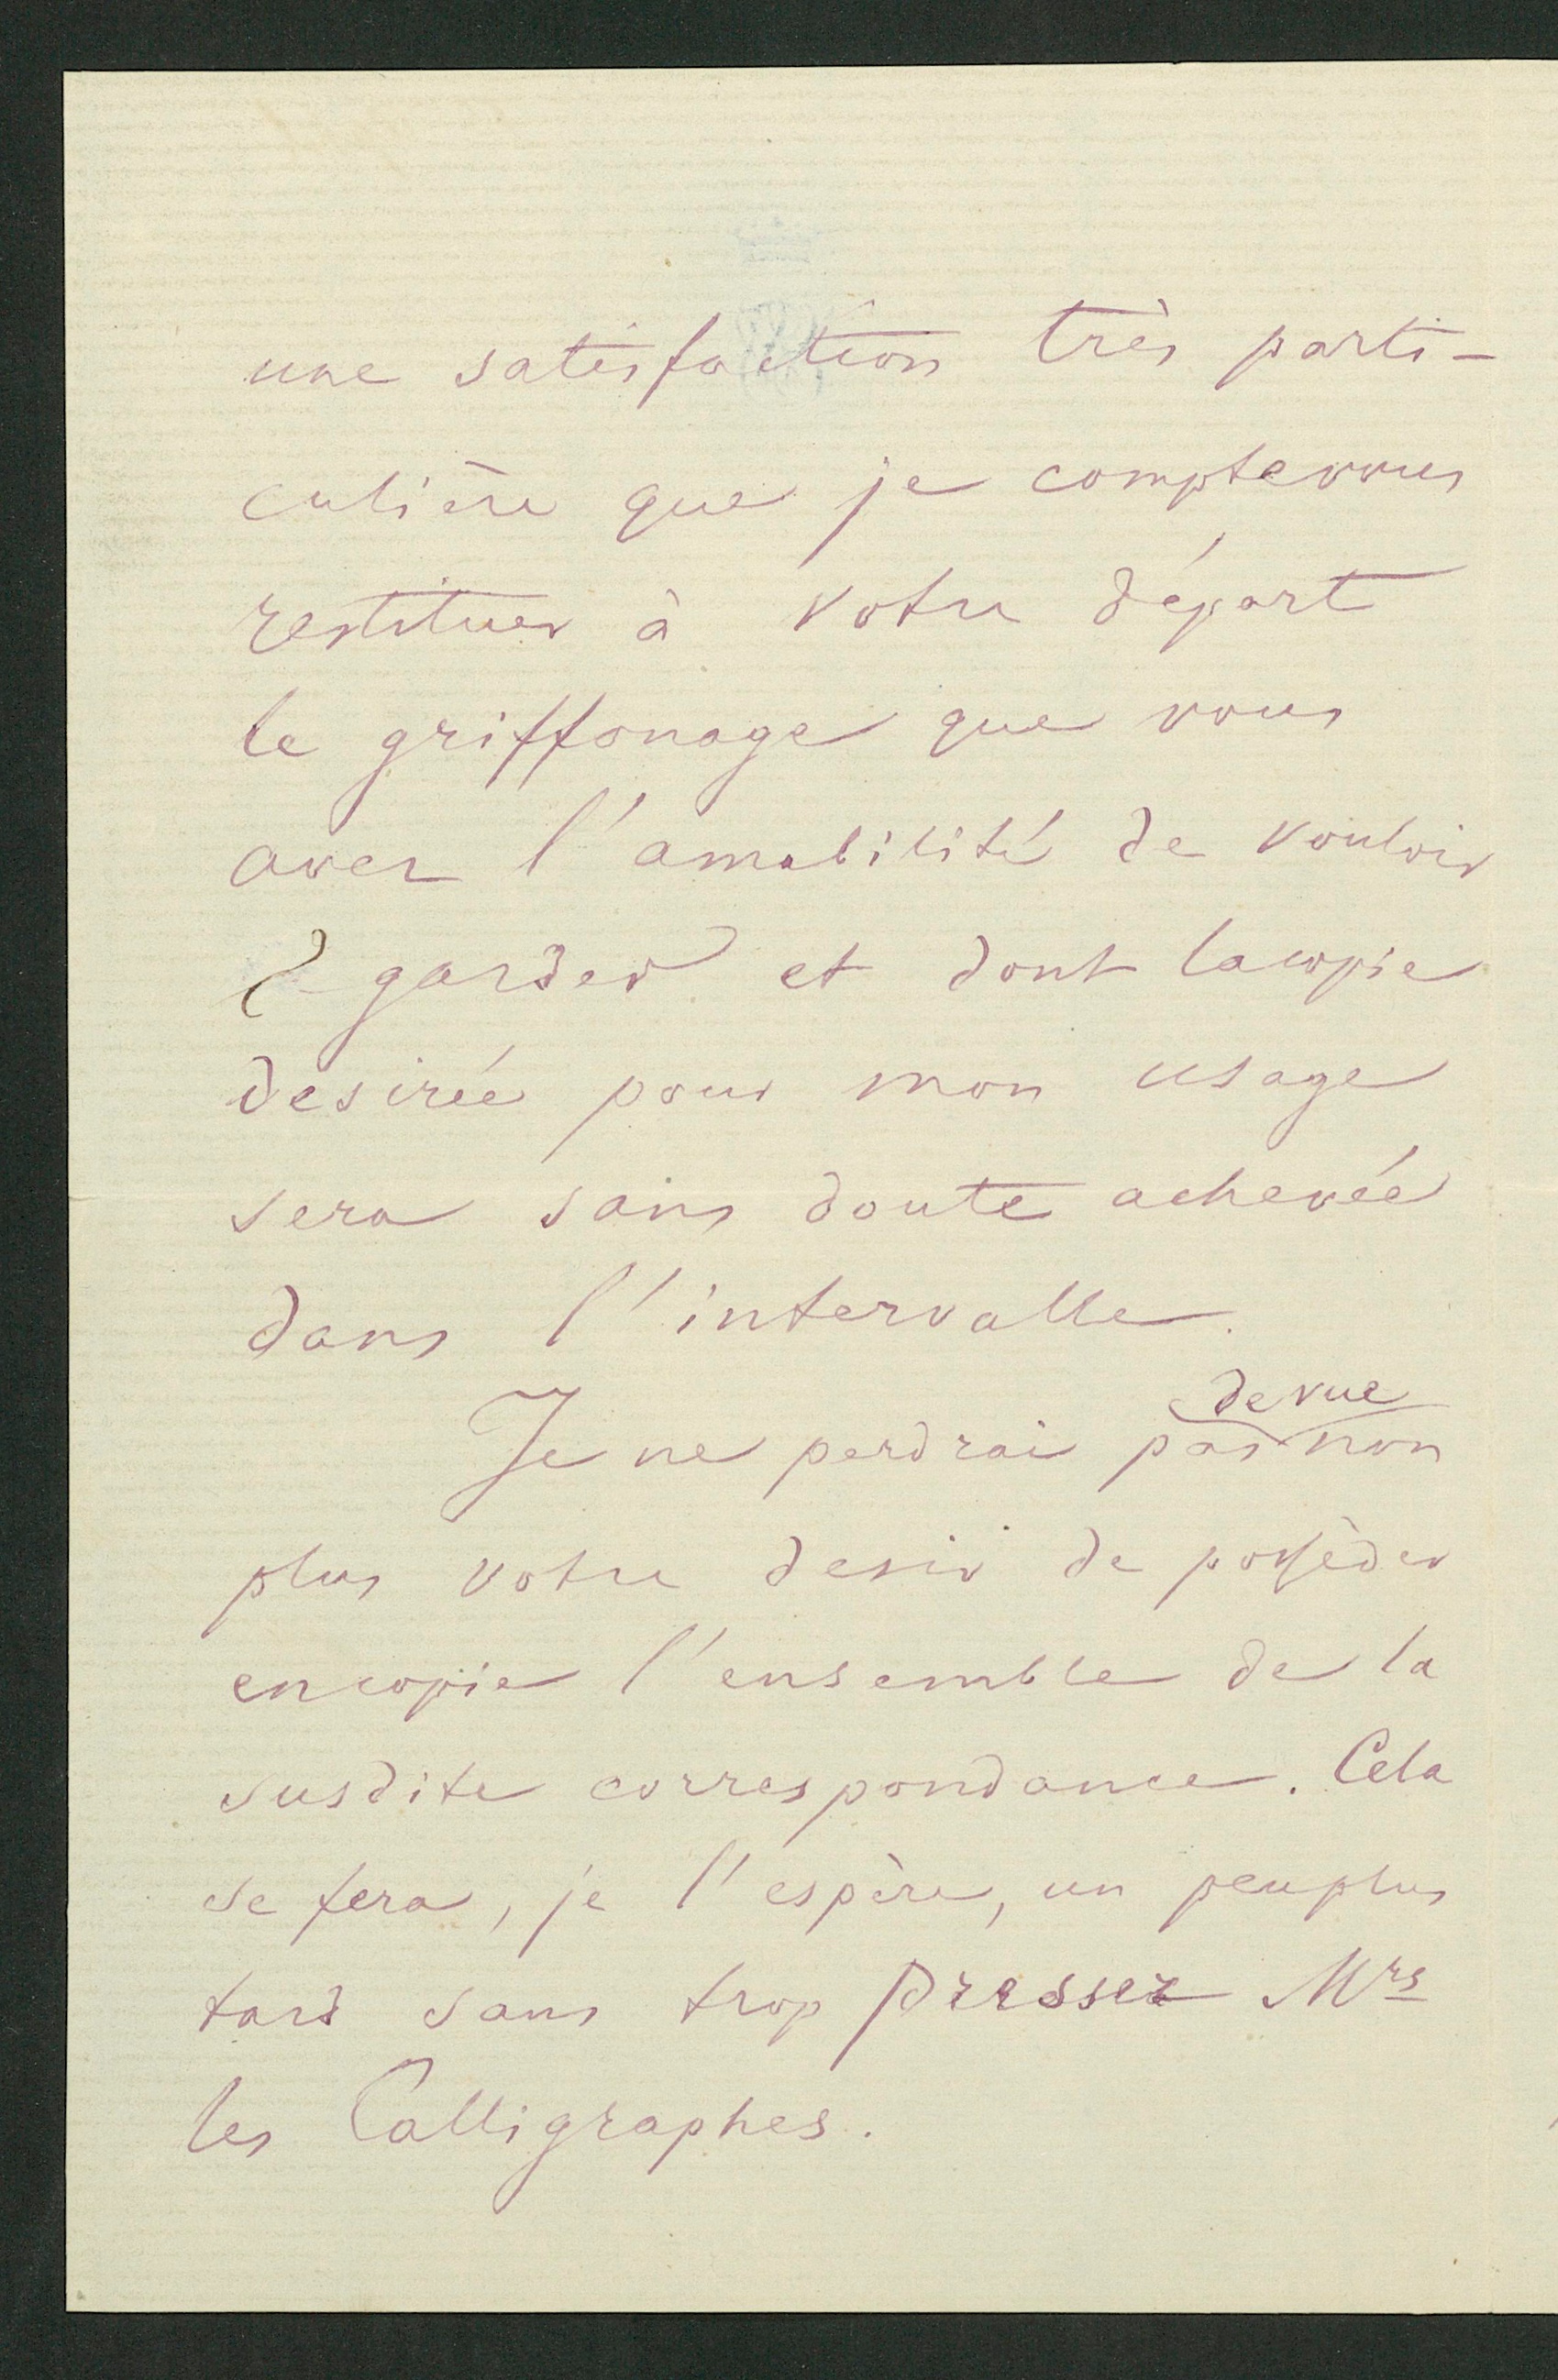 une satisfaction très parti-
culière que je compte vous
restituer à votre départ
le griffonage que vous
avez l'amabilité de vouloir
garder et dont la copie
desirée pour mon usage
sera sans doute achevée
dans l'intervalle.
de vue
Je ne perdrai pas non
plus votre desir de possèder
en copie l'ensemble de la
susdite correspondance. Cela
se fera, je l'espère, un peu plus
tard sans trop presser Mrs
les Calligraphes.